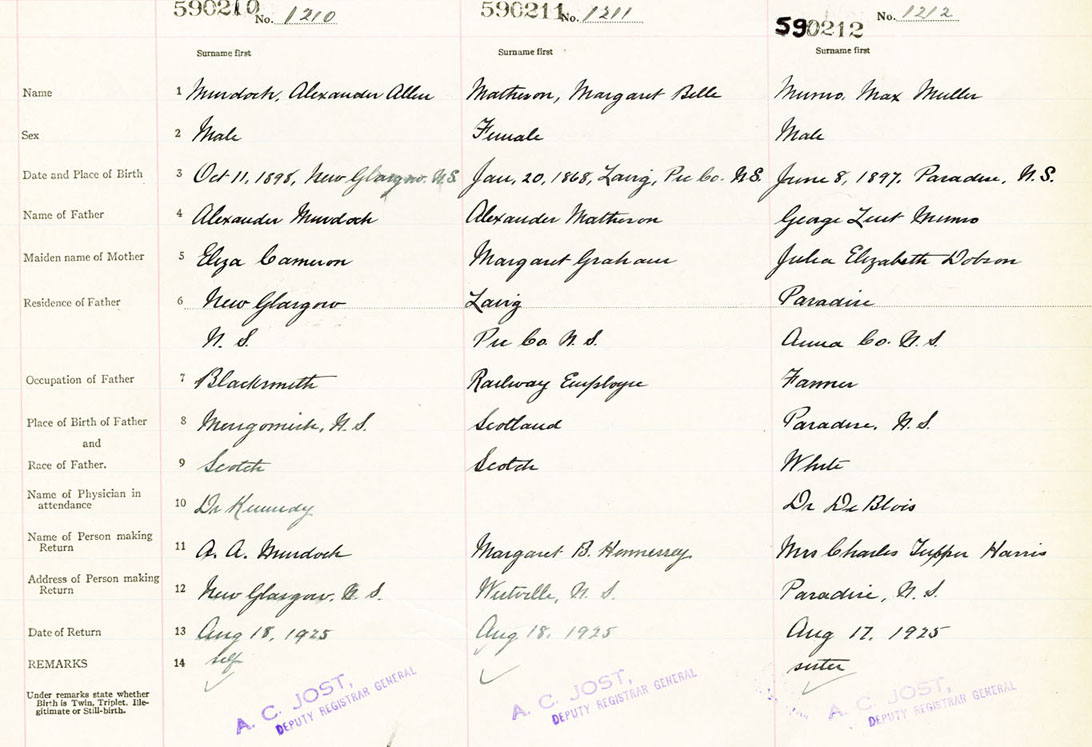 590210 No. 1210 590211 No. 1211 590212 No. 1212
Surname first Surname first Surname first
Name 1 Murdoch, Alexander Allen Matheson, Margaret Belle Munro, Max Muller
Sex 2 Male Female Male
Date and Place of Birth 3 Oct 11, 1898, New Glasgow. N.S. Jan, 20, 1868, Pic Co. N.S. June 8, 1897. Paradise, N.S.
Name of Father 4 Alexander Murdoch Alexander Matheson George Munro
Maiden name of Mother 5 Eliza Cameron Margaret Graham Julia Elizabeth Dobson
Residence of Father 6 New Glasgow Paradise
N. S. Pic Co. N. S. Anna Co. N. S.
Occupation of Father 7 Blacksmith Railway Employee Farmer
Place of Birth of Father 8 Merigomish, N. S. Scotland Paradise, N. S.
and
Race of Father. 9 Scotch Scotch White
Name of Physician in
attendance 10 Dr Kennedy Dr De Blois
Name of Person making
Return 11 A. A. Murdoch Margaret B. Hennessey Mrs Charles Tupper Harris
Address of Person making
Return 12 New Glasgow, N. S. Westville, N. S. Paradise, N. S.
Date of Return 13 Aug 18, 1925 Aug 18. 1925 Aug 17. 1925
REMARKS 14 self sister
Under remarks state whether
Birth is Twin, Triplet, Ille-
gitimate or Still-birth.
A. C. JOST, A. C. JOST, A. C. JOST,
DEPUTY REGISTRAR GENERAL DEPUTY REGISTRAR GENERAL DEPUTY REGISTRAR GENERAL